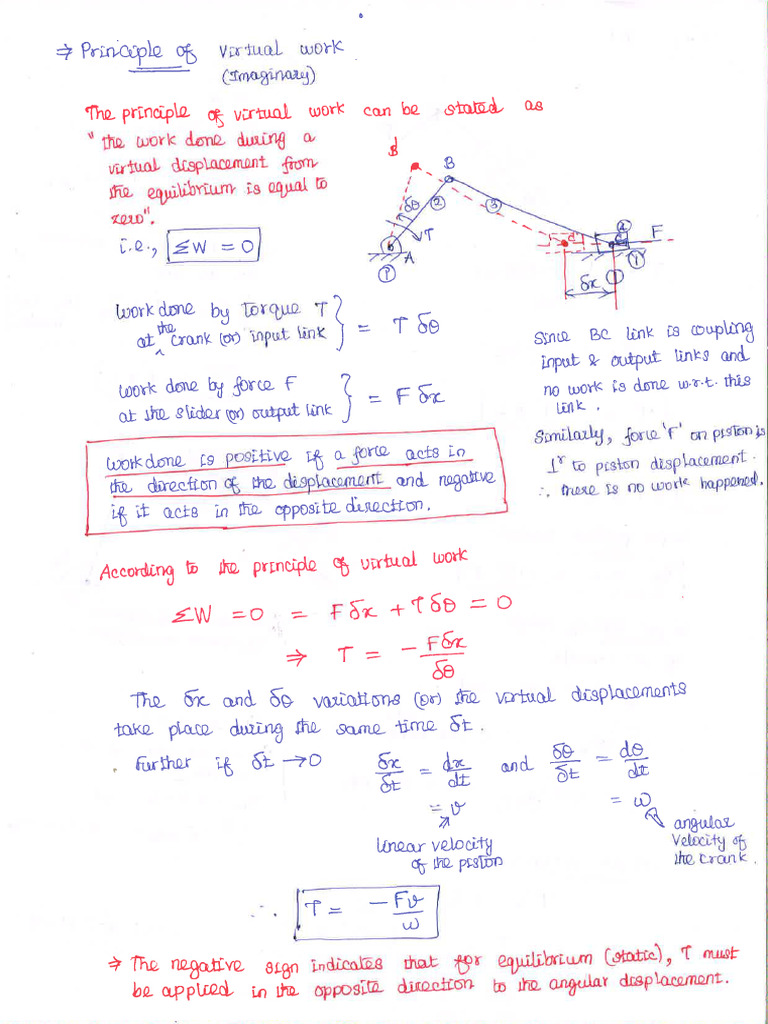 ⇒ Principle of Virtual Work
(Imaginary)
The principle of virtual work can be stated as
"the work done during a
virtual displacement from
the equilibrium is equal to
zero".
i.e., ΣW = 0
B'
B
δθ
2
3
T
A
1
c'
4
c
F
1
δx
Work done by torque T
at the crank (or) input link } = T δθ
Work done by force F
at the slider (or) output link } = F δx
Since BC link is coupling
input & output links and
no work is done w.r.t. this
link.
Similarly, force 'F' on piston is
⊥r to piston displacement.
∴ there is no work happened.
Work done is positive if a force acts in
the direction of the displacement and negative
if it acts in the opposite direction.
According to the principle of virtual work
ΣW = 0 = Fδx + Tδθ = 0
⇒ T = - Fδx/δθ
The δx and δθ variations (or) the virtual displacements
take place during the same time δt.
Further if δt → 0 δx/δt = dx/dt and δθ/δt = dθ/dt
= v = ω
linear velocity
of the piston
angular
velocity of
the crank.
∴ T = -Fv/ω
⇒ The negative sign indicates that for equilibrium (static), T must
be applied in the opposite direction to the angular displacement.